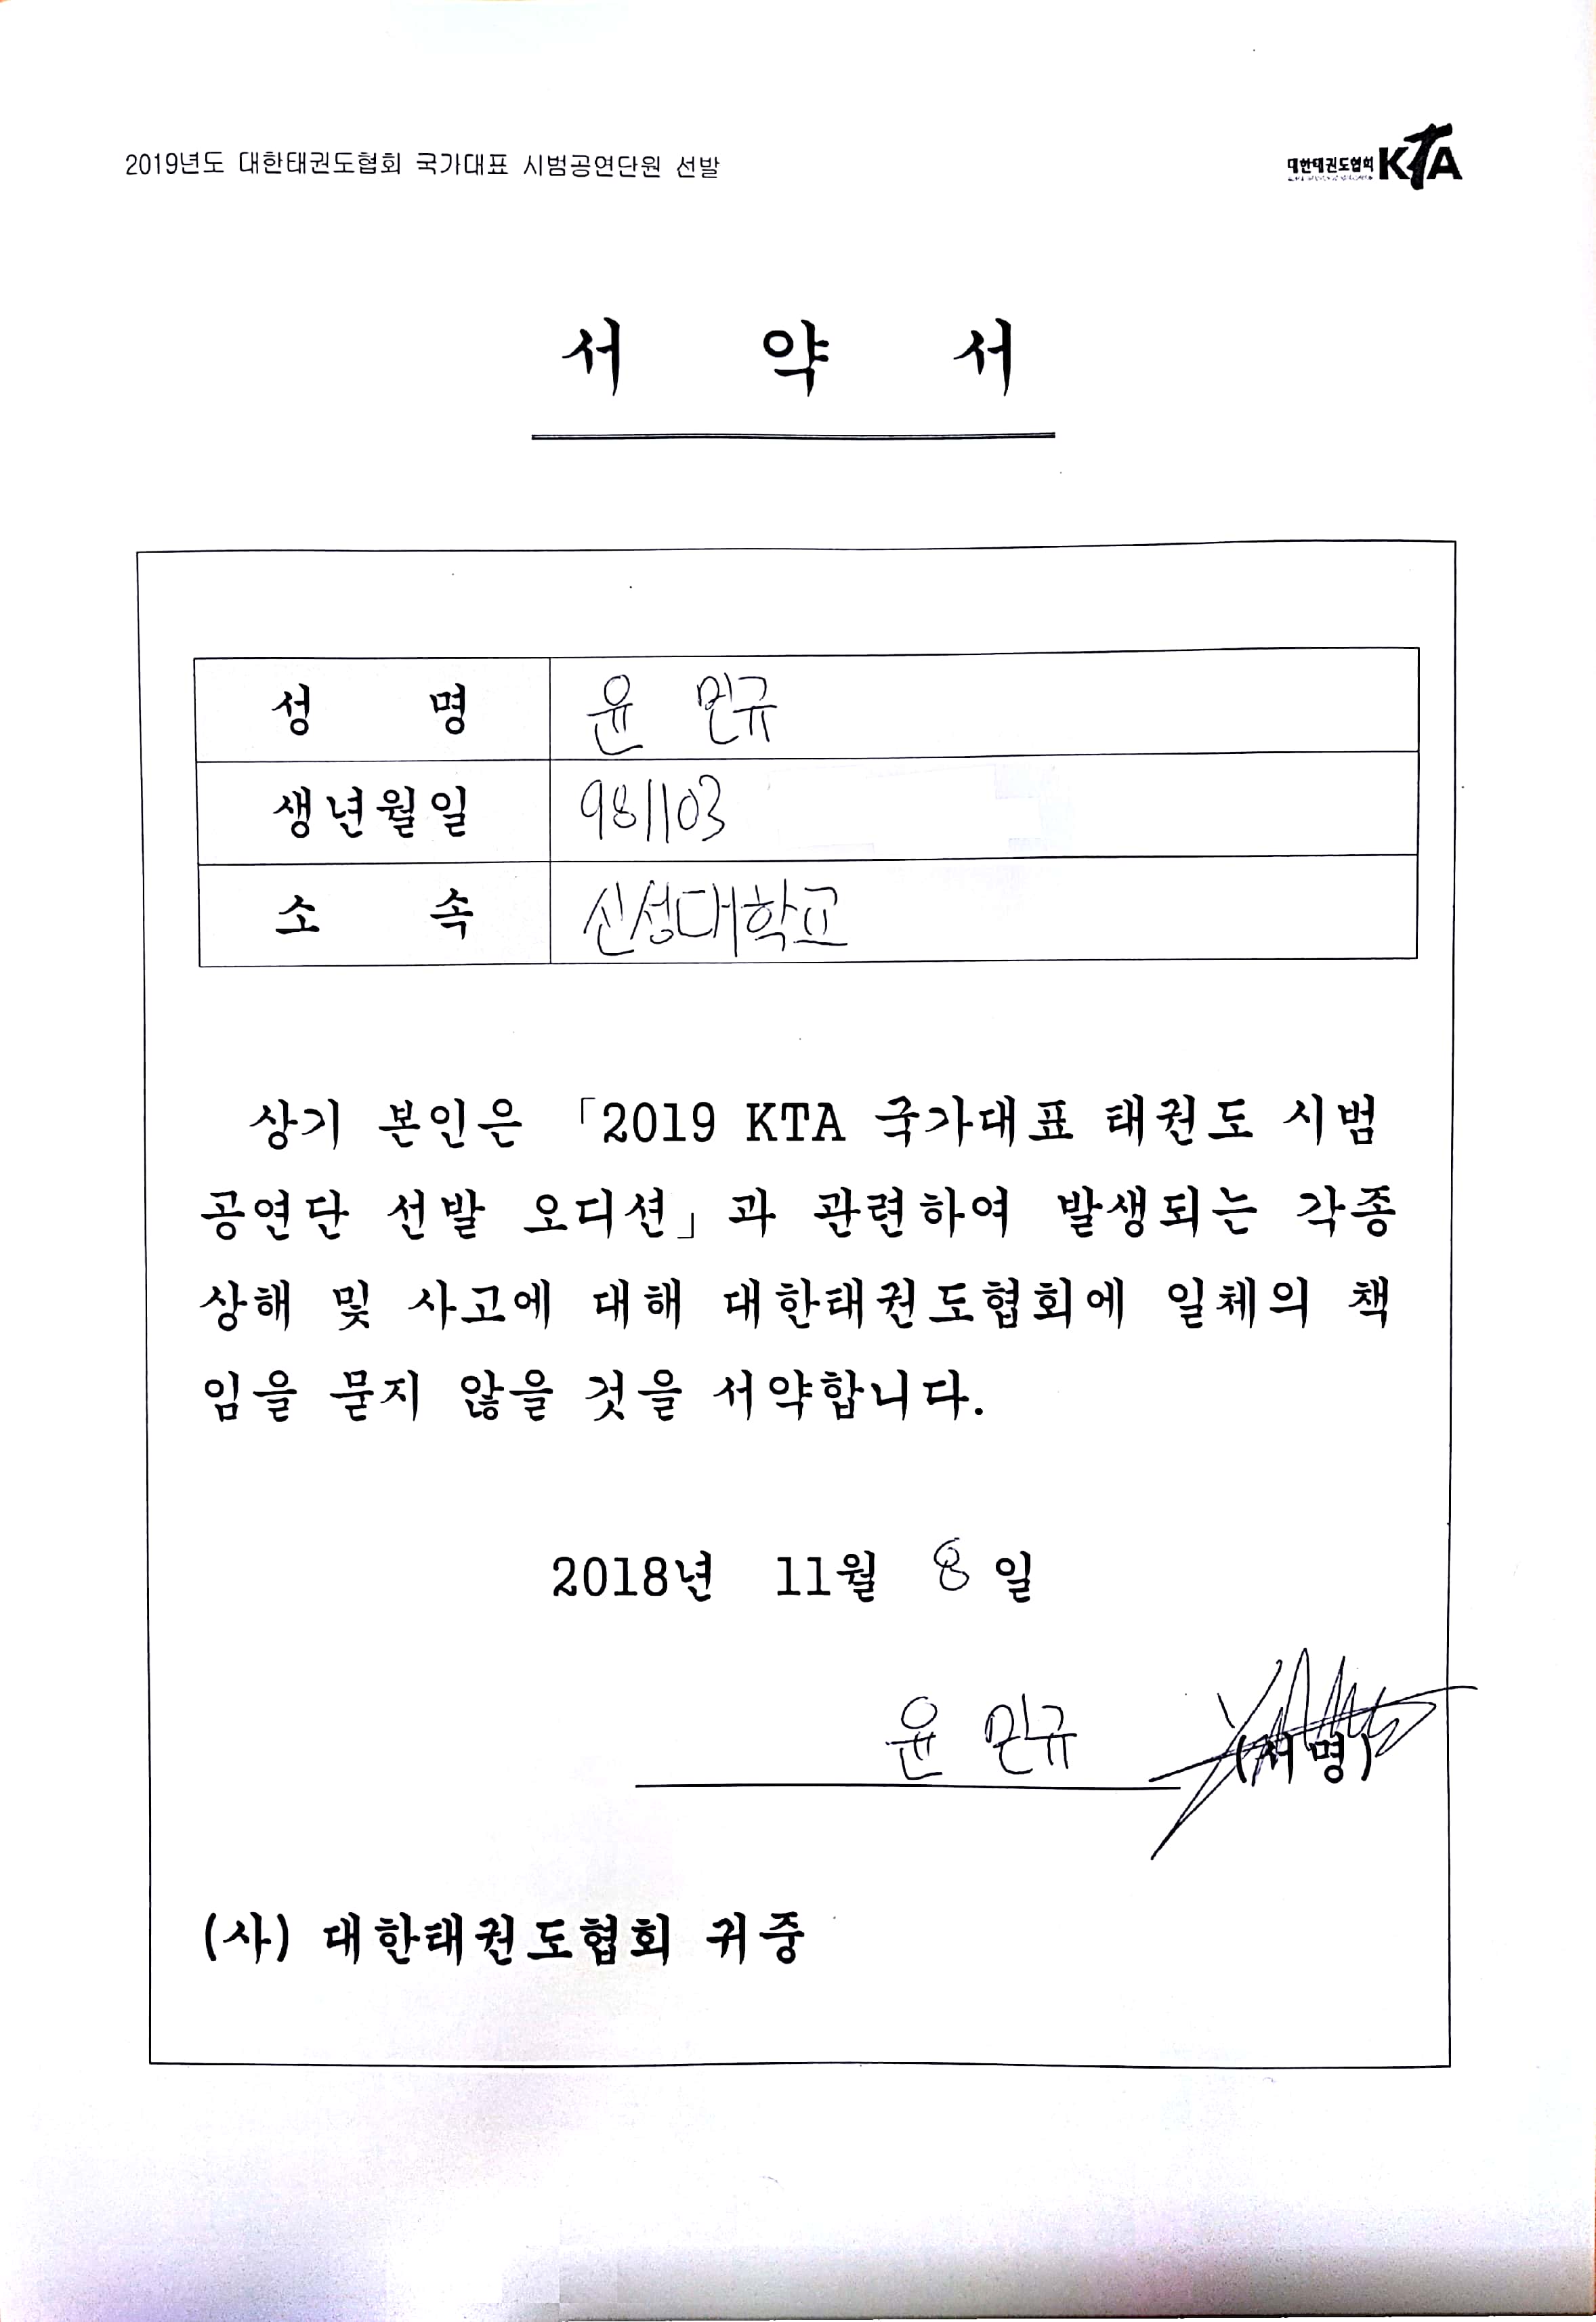 2019년도 대한태권도협회 국가대표 시범공연단원 선발
대한태권도협회 KTA
서 약 서
성 명 윤 민규
생년월일 981103
소 속 신성대학교
상기 본인은 「2019 KTA 국가대표 태권도 시범
공연단 선발 오디션」과 관련하여 발생되는 각종
상해 및 사고에 대해 대한태권도협회에 일체의 책
임을 묻지 않을 것을 서약합니다.
2018년 11월 8 일
윤 민규 (서명)
(사) 대한태권도협회 귀중